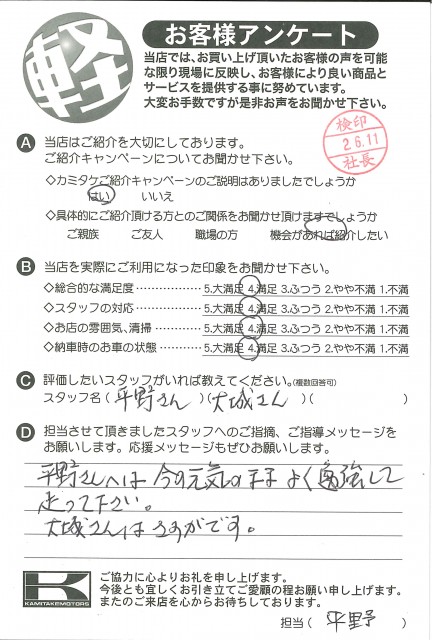 軽
お客様アンケート
当店では、お買い上げ頂いたお客様の声を可能
な限り現場に反映し、お客様により良い商品と
サービスを提供する事に努めています。
大変お手数ですが是非お声をお聞かせ下さい。
検印
26.11
社長
A 当店はご紹介を大切にしております。
ご紹介キャンペーンについてお聞かせ下さい。
◇カミタケご紹介キャンペーンのご説明はありましたでしょうか
はい いいえ
◇具体的にご紹介頂ける方とのご関係をお聞かせ頂けますでしょうか
ご親族 ご友人 職場の方 機会があれば紹介したい
B 当店を実際にご利用になった印象をお聞かせ下さい。
◇総合的な満足度 ………… 5.大満足 4.満足 3.ふつう 2.やや不満 1.不満
◇スタッフの対応 ………… 5.大満足 4.満足 3.ふつう 2.やや不満 1.不満
◇お店の雰囲気、清掃 ……… 5.大満足 4.満足 3.ふつう 2.やや不満 1.不満
◇納車時のお車の状態 ……… 5.大満足 4.満足 3.ふつう 2.やや不満 1.不満
C 評価したいスタッフがいれば教えてください。(複数回答可)
スタッフ名(平野さん)(大城さん)( )
D 担当させて頂きましたスタッフへのご指摘、ご指導メッセージを
お願いします。応援メッセージもぜひお願いします。
平野さんへは 今の元気のまま よく勉強して
走って下さい。
大城さんはさすがです。
K
KAMITAKEMOTORS
ご協力に心よりお礼を申し上げます。
今後とも宜しくお引き立てご愛顧の程お願い申し上げます。
またのご来店を心からお待ちしております。
担当( 平野 )